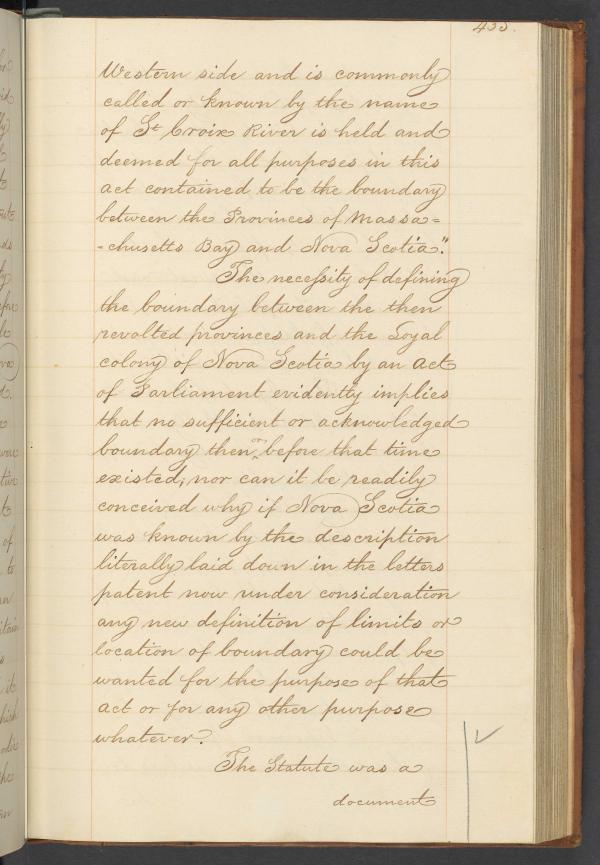 435.
Western side and is commonly
called or known by the name
of St Croix River is held and
deemed for all purposes in this
act contained to be the boundary
between the Provinces of Massa=
-chusetts Bay and Nova Scotia."
The necessity of defining
the boundary between the then
revolted provinces and the Loyal
colony of Nova Scotia by an act
of Parliament evidently implies
that no sufficient or acknowledged
boundary then or before that time
existed, nor can it be readily
conceived why if Nova Scotia
was known by the description
literally laid down in the letters
patent now under consideration
any new definition of limits or
location of boundary could be
wanted for the purpose of that
act or for any other purpose
whatever.
The Statute was a
document